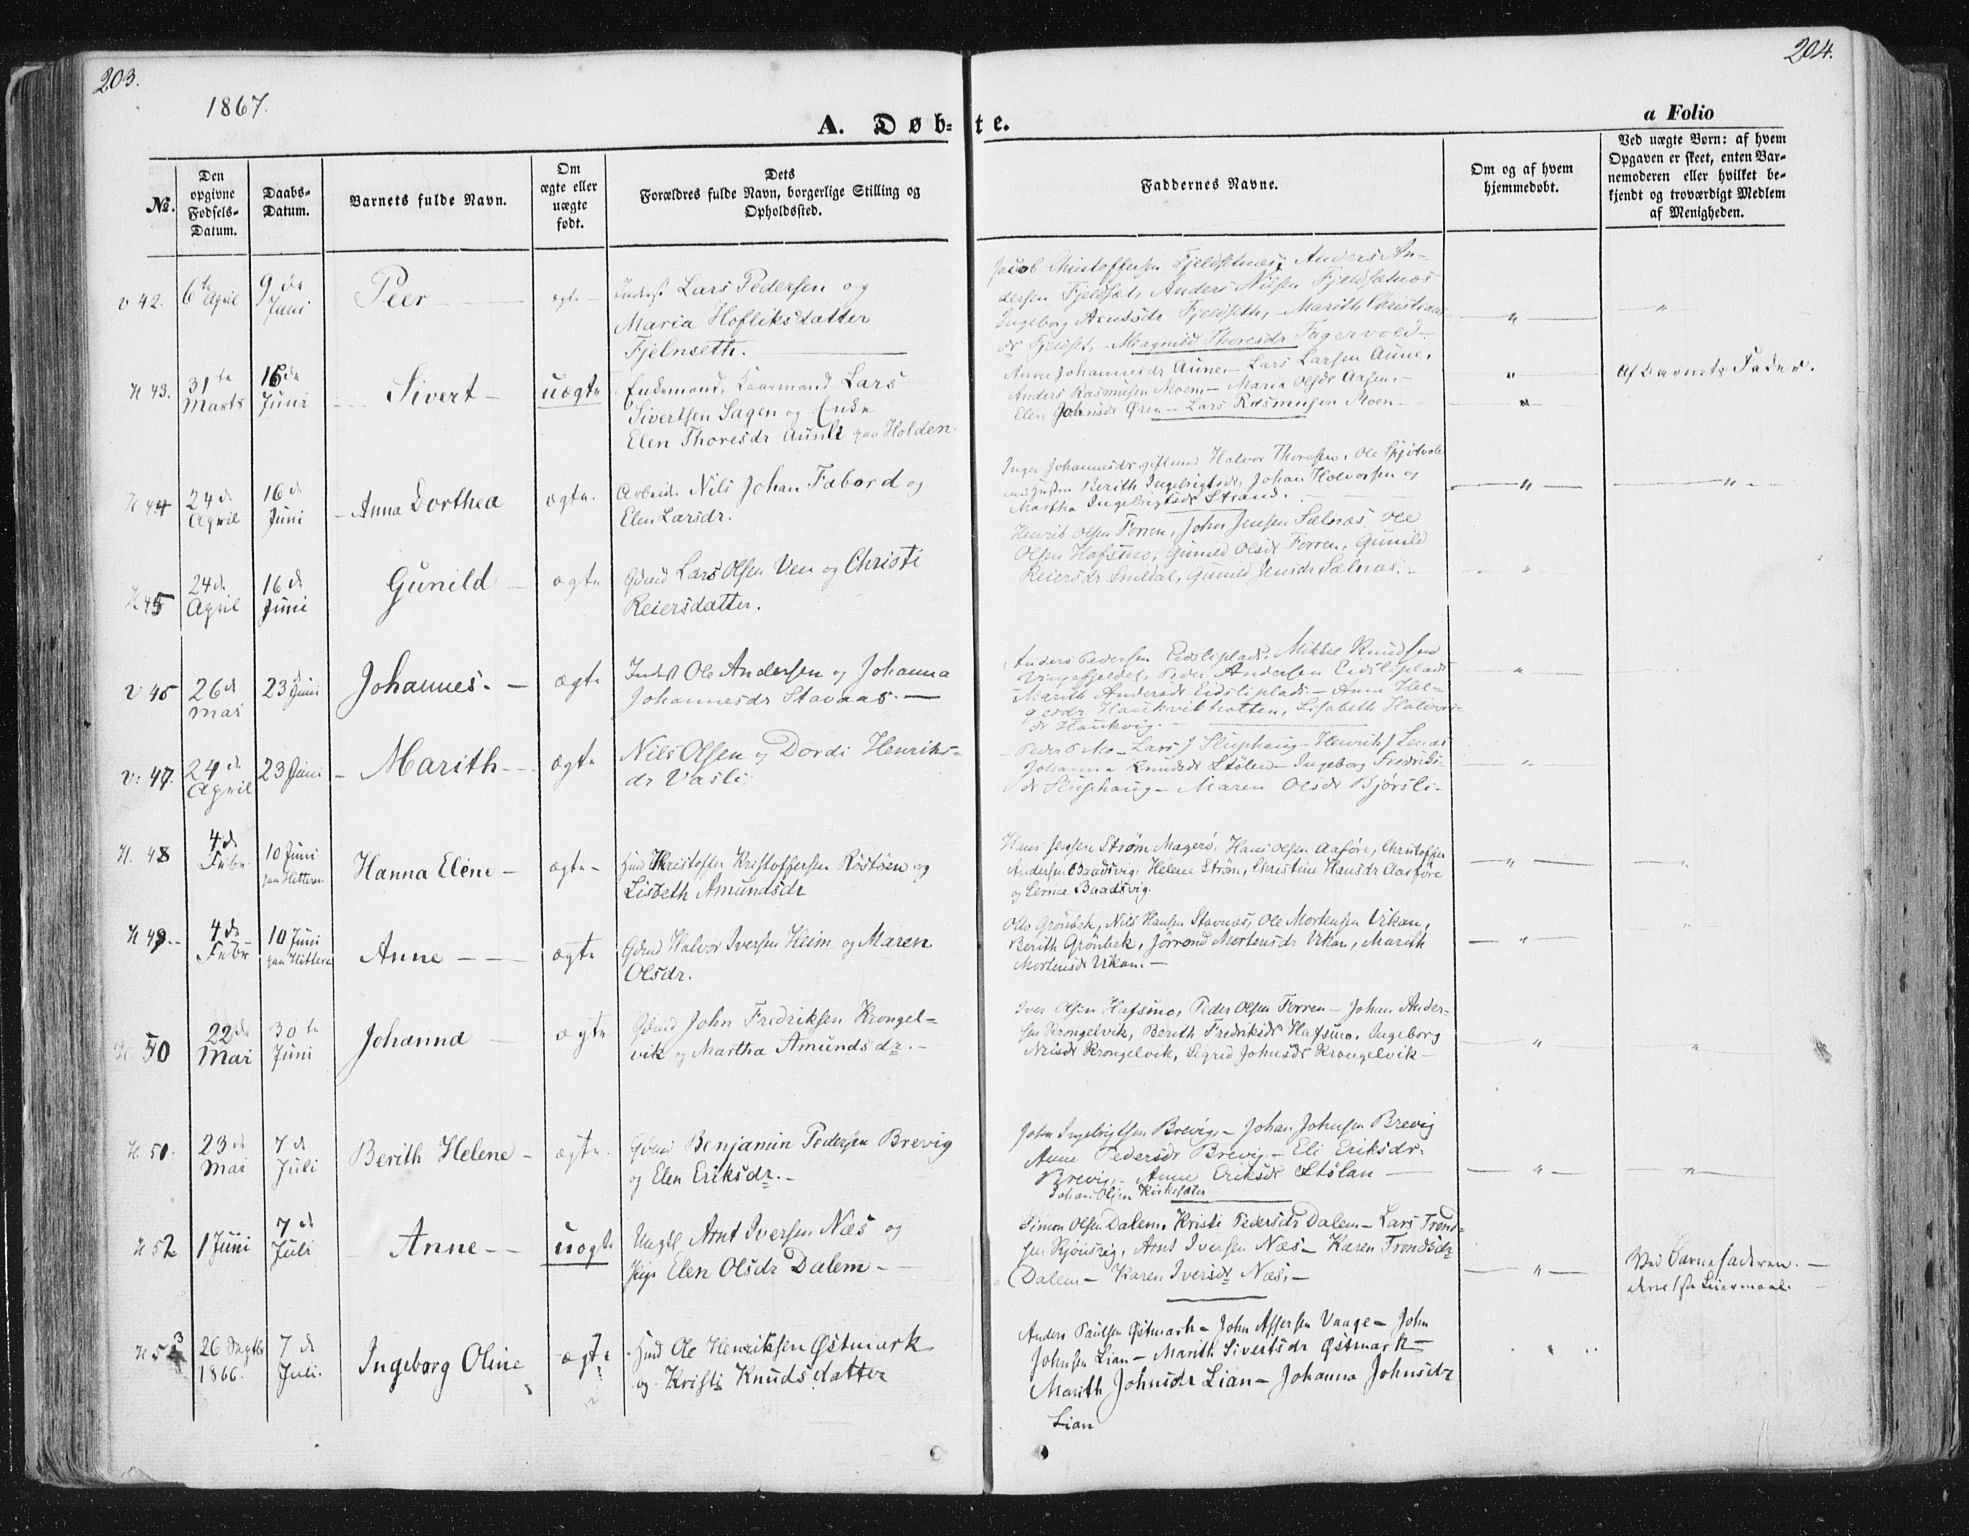 203.
204.
1867.
A. Døb=te.
a Folio
No.
Den opgivne Fødsels-Datum.
Daabs-Datum.
Barnets fulde Navn.
Om ægte eller uægte født.
Dets Forældres fulde Navn, borgerlige Stilling og Opholdssted.
Faddernes Navne.
Om og af hvem hjemmedøbt.
Ved uægte Børn: af hvem Opgaven er skeet, enten Barnemoderen eller hvilket bekjendt og troværdigt Medlem af Menigheden.
v 42. 6te April 9de Juni Peer — ægte —
Inderst Lars Pedersen og
Maria Hofliksdatter
Fjelnseth.
Jacob Christoffersen Fjeldsetnæs, Anders An-
dersen Fjeldsæt, Anders Nilsen Fjeldsætnæs
Ingeborg Arntsdr Fjeldseth, Marith Christians
dr Fjeldset, Magnild Thoresdr Fagervold
H 43. 31te Marts 16de Juni Sivert — uægte
Enkemand, Kaarmand Lars
Sivertsen Sagen og Enke
Elen Thoresdr Aune paa Holden.
Anne Johannesdr Aune, — Lars Larsen Aune,
Anders Rasmusen Moen, — Maria Olsdr Aasen, —
Elen Johnsdr Øren — Lars Rasmusen Moen —
Af Barnets Fader.
H 44 24de April 16de Juni Anna Dorthea ægte.
Arbeid. Nils Johan Fabord og
Elen Larsdr.
Inger Johannesdr gift med Halvor Thoresen, Ole Spjøtvold
Berith Ingebrigtsdr, Johan Halvorsen og
Martha Ingebrigtsdr Strand.
H 45 24de April 16de Juni Gunild — ægte
Gdmd Lars Olsen Ven og Christi
Reiersdatter.
Henrik Olsen Forren, John Jensen Sælnæs, Ole
Olsen Hafsmo, Gunild Olsdr Forren, Gunild
Reiersdr Smldal, Gunild Jensdr Sælnæs. —
v 46 26de Mai 23 Juni Johannes. — ægte
Inderst Ole Andersen og Johanna
Johannesdr Stavaas. —
Anders Pedersen Eidsliplads, Mikkel Knudsen
Vingefjeldet, Peder Andersen Eidsliplads
Marith Andersdr Eidsliplads — Anne Hel-
gesdr Haukvikhatten, Lisabeth Halvors-
dr Haukvig. —
v: 47. 24de April 23 Juni Marith — ægte
Nils Olsen og Dordi Henriks-
dr Vasli.
Peder O Mo — Lars J Sluphaug — Henrik J Lends
Johanna Knudsdr Stølen — Ingeborg Fredriks-
dr Sluphaug — Maren Olsdr Bjørsli —
H. 48 4de Febr. 10 Juni paa Hitteren Hanna Elene — ægte —
Hmd Kristoffer Kristoffersen Røstøen og
Lisbeth Amundsdr
Hans Jensen Strøm Magerø, Hans Olsen Aaføre, Christoffer
Andersen Baadsvig, Helene Strøm, Christine Hansdr Aasføre
og Lerna Baadsvig.
H 49. 4de Febr 10 Juni paa Hitteren Anne — ægte
Gdmd Halvor Iversen Heim og Maren
Olsdr.
Ole Grönbek, Nils Hansen Stavnæs, Ole Mortensen Vikan,
Berith Grönbek, Jørrond Mortensdr Vikan, Marith
Mortensdr Vikan. —
H 50 22de Mai 30te Juni Johanna — ægte
Gdmd John Fredriksen Krongel-
vik og Martha Amundsdr. —
Iver Olsen Hafsmo, Peder Olsen Forren — Johan Ander-
sen Krongelvik, Berith Fredriksdr Hafsmo, Ingeborg
Nilsdr Krongelvik, Sigrid Johnsdr Krongelvik —
H 51. 23de Mai 7de Juli Berith Helene — ægte.
Gdmd Benjamin Pedersen Brevig
og Elen Eriksdr. —
John Ingebrigtsen Brevig, — Johan Johnsen Brevig
Anne Pedersdr Brevig — Eli Eriksdr.
Brevig, — Anne Eriksdr Stølan —
Johan Olsen Kirkesæter
H 52 1 Juni 7de Juli Anne — uægte
Ungk Arnt Iversen Næs og
Pige Elen Olsdr Dalem —
Simon Olsen Dalem, Kristi Pedersdr Dalem — Lars Trond-
sen Rjønvig, Arnt Iversen Næs — Karen Trondsdr
Dalem — Karen Iversdr Næs. —
Ved Barnefaderen. —
deres 1ste Leiermaal.
H 53 26 Septbr 1866. 7de Juli. Ingeborg Oline ægte
Hmd Ole Henriksen Østmark
og Kristi Knudsdatter
Anders Paulsen Østmark — John Assersen Vaage — John
Johnsen Lian — Marith Sivertsdr Østmark —
Marith Johnsdr Lian — Johanna Johnsdr
Lian